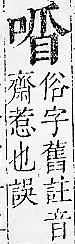 俗字舊註音
齋惹也誤